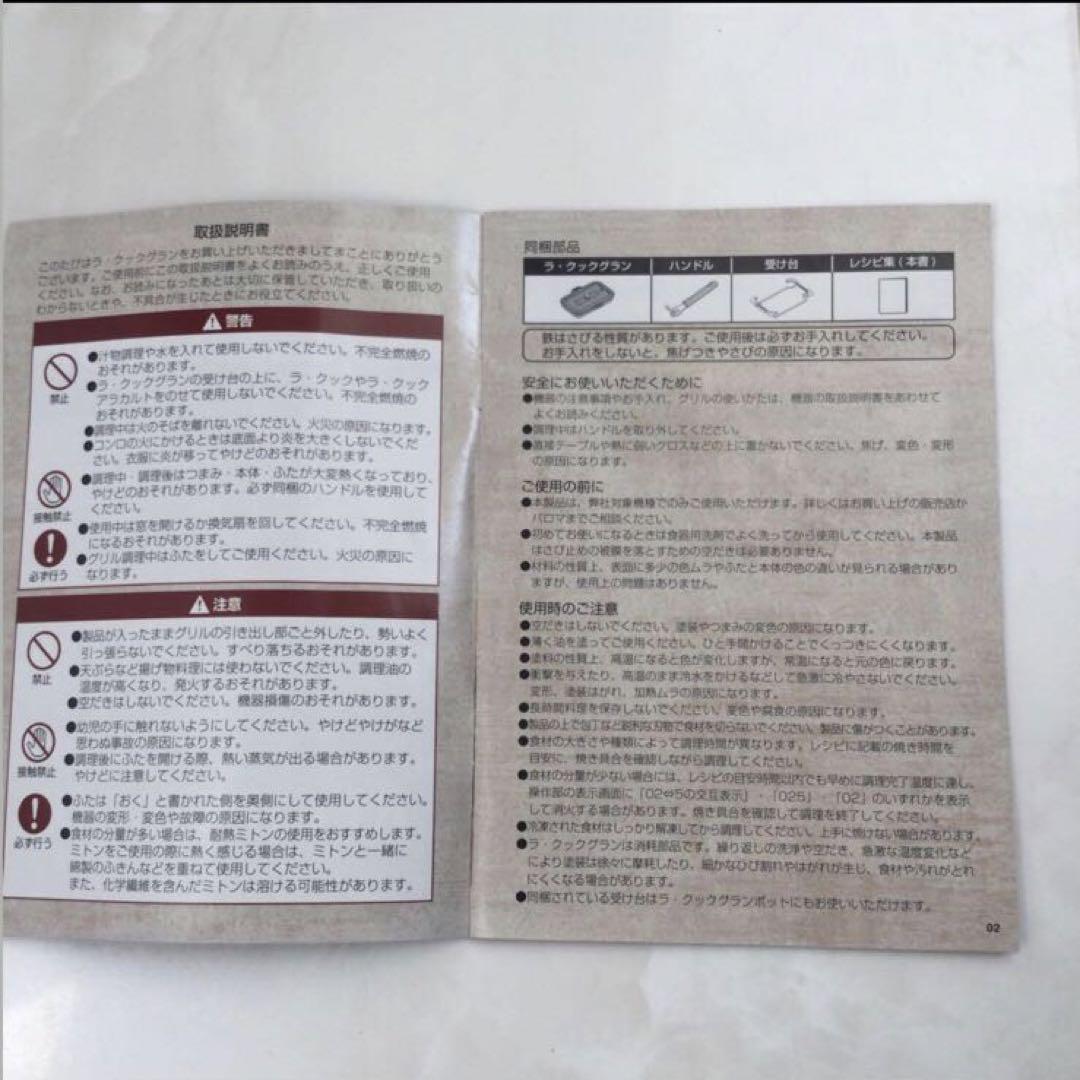 取扱説明書
このたびはラ・クックグランをお買い上げいただきましてまことにありがとう
ございます。ご使用前にこの取扱説明書をよくお読みのうえ、正しくご使用
ください。なお、お読みになったあとは大切に保管していただき、取り扱いの
わからないときや、不具合が生じたときにお役立てください。
警告
●汁物調理や水を入れて使用しないでください。不完全燃焼の
おそれがあります。
●ラ・クックグランの受け台の上に、ラ・クックやラ・クック
アラカルトをのせて使用しないでください。不完全燃焼の
おそれがあります。
●調理中は火のそばを離れないでください。火災の原因になります。
●コンロの火にかけるときは底面より炎を大きくしないでくだ
さい。衣服に炎が移ってやけどのおそれがあります。
禁止
●調理中・調理後はつまみ・本体・ふたが大変熱くなっており、
やけどのおそれがあります。必ず同梱のハンドルを使用して
ください。
接触禁止
●使用中は窓を開けるか換気扇を回してください。不完全燃焼
になるおそれがあります。
●グリル調理中はふたをしてご使用ください。火災の原因に
なります。
必ず行う
注意
●製品が入ったままグリルの引き出し部ごと外したり、勢いよく
引っ張らないでください。すべり落ちるおそれがあります。
●天ぷらなど揚げ物料理には使わないでください。調理油の
温度が高くなり、発火するおそれがあります。
●空だきはしないでください。機器損傷のおそれがあります。
禁止
●幼児の手に触れないようにしてください。やけどやけがなど
思わぬ事故の原因になります。
●調理後にふたを開ける際、熱い蒸気が出る場合があります。
やけどに注意してください。
接触禁止
●ふたは「おく」と書かれた側を奥側にして使用してください。
機器の変形・変色や故障の原因になります。
●食材の分量が多い場合は、耐熱ミトンの使用をおすすめします。
ミトンをご使用の際に熱く感じる場合は、ミトンと一緒に
綿製のふきんなどを重ねて使用してください。
また、化学繊維を含んだミトンは溶ける可能性があります。
必ず行う
同梱部品
ラ・クックグラン ハンドル 受け台 レシピ集(本書)
鉄はさびる性質があります。ご使用後は必ずお手入れしてください。
お手入れをしないと、焦げつきやさびの原因になります。
安全にお使いいただくために
●機器の注意事項やお手入れ、グリルの使いかたは、機器の取扱説明書をあわせて
よくお読みください。
●調理中はハンドルを取り外してください。
●直接テーブルや熱に弱いクロスなどの上に置かないでください。焦げ、変色・変形
の原因になります。
ご使用の前に
●本製品は、弊社対象機種でのみご使用いただけます。詳しくはお買い上げの販売店か
パロマまでご相談ください。
●初めてお使いになるときは食器用洗剤でよく洗ってから使用してください。本製品
はさび止めの被膜を落とすための空だきは必要ありません。
●材料の性質上、表面に多少の色ムラやふたと本体の色の違いが見られる場合があり
ますが、使用上の問題はありません。
使用時のご注意
●空だきはしないでください。塗装やつまみの変色の原因になります。
●薄く油を塗ってご使用ください。ひと手間かけることでくっつきにくくなります。
●塗料の性質上、高温になると色が変化しますが、常温になると元の色に戻ります。
●衝撃を与えたり、高温のまま冷水をかけるなどして急激に冷やさないでください。
変形、塗装はがれ、加熱ムラの原因になります。
●長時間料理を保存しないでください。変色や腐食の原因になります。
●製品の上で包丁など鋭利な刃物で食材を切らないでください。製品に傷がつくことがあります。
●食材の大きさや種類によって調理時間が異なります。レシピに記載の焼き時間を
目安に、焼き具合を確認しながら調理してください。
●食材の分量が少ない場合には、レシピの目安時間以内でも早めに調理完了温度に達し、
操作部の表示画面に「02⇔5の交互表示」・「025」・「02」のいずれかを表示
して消火する場合があります。焼き具合を確認して調理を終了してください。
●冷凍された食材はしっかり解凍してから調理してください。上手に焼けない場合があります。
●ラ・クックグランは消耗部品です。繰り返しの洗浄や空だき、急激な温度変化など
により塗装は徐々に摩耗したり、細かなひび割れやはがれが生じ、食材や汚れがとれ
にくくなる場合があります。
●同梱されている受け台はラ・クックグランポットにもお使いいただけます。
02